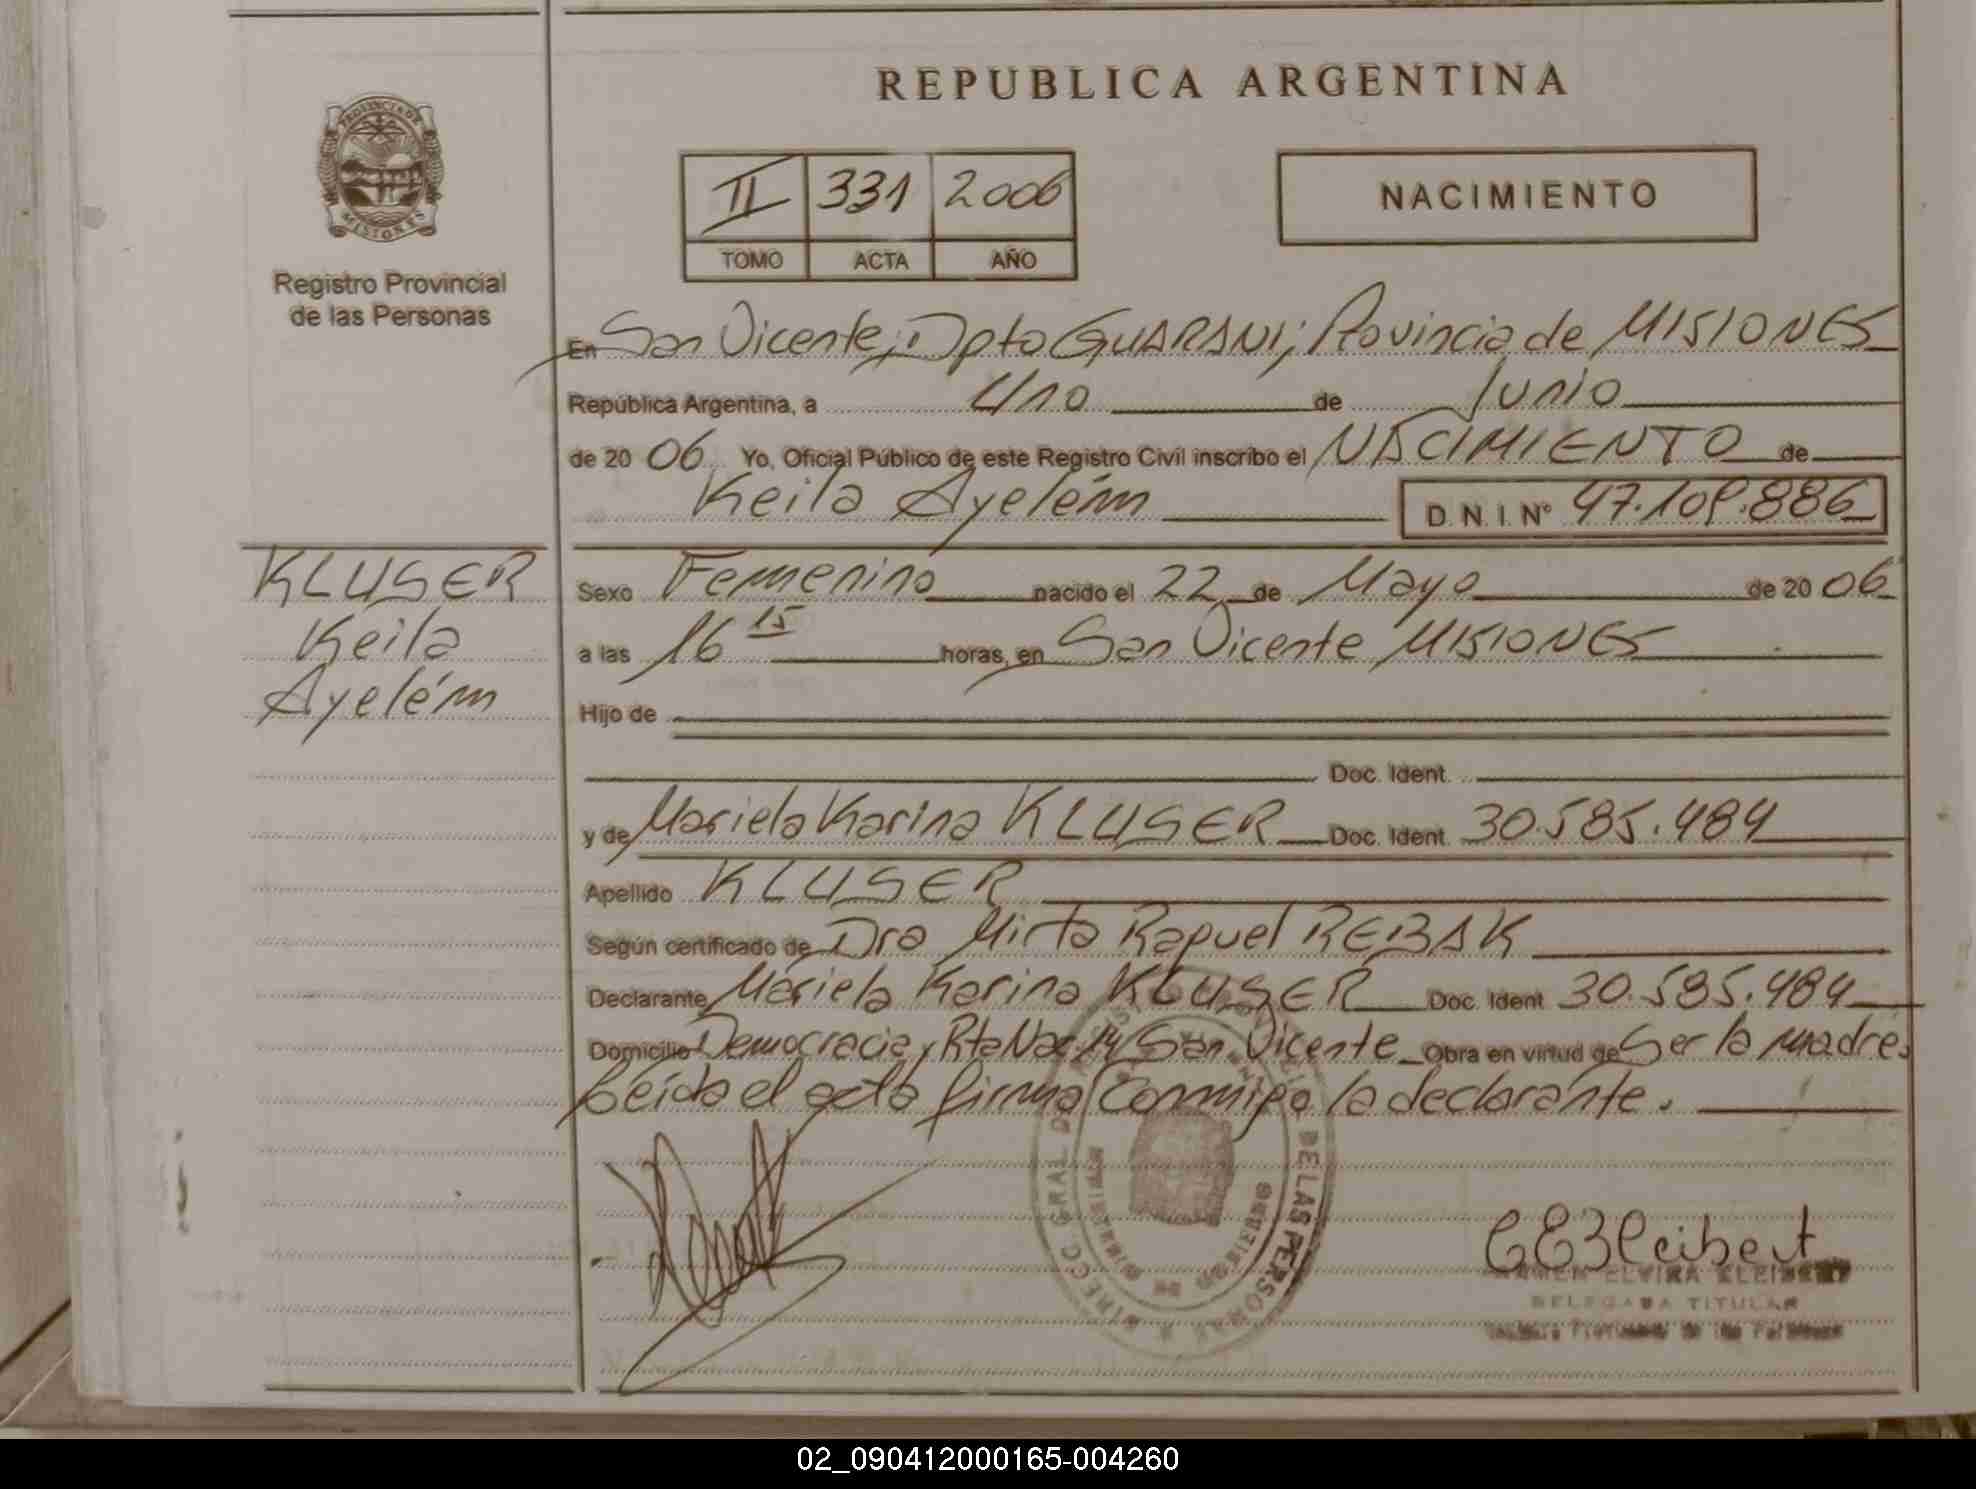 REPUBLICA ARGENTINA
PROVINCIA DE MISIONES
Registro Provincial
de las Personas
II 331 2006
TOMO ACTA AÑO
NACIMIENTO
En San Vicente; Dpto GUARANI; Provincia de MISIONES
República Argentina, a Uno de Junio
de 20 06 Yo, Oficial Público de este Registro Civil inscribo el NACIMIENTO de
Keila Ayelém D.N.I. Nº 47.109.886
KLUSER
Keila
Ayelém
Sexo Femenino nacido el 22 de Mayo de 20 06
a las 16 15 horas, en San Vicente MISIONES
Hijo de
Doc. Ident.
y de Mariela Karina KLUSER Doc. Ident. 30.585.484
Apellido KLUSER
Según certificado de Dra Mirta Raquel REBAK
Declarante Mariela Karina KLUSER Doc. Ident 30.585.484
Domicilio Democracia y Rta Nac 14 San Vicente Obra en virtud de Ser la madre.
Leída el acta firma conmigo la declarante.
DIRECC. GRAL. DE LAS PERSONAS
CEKleibert
CARMEN ELVIRA KLEIBERT
DELEGADA TITULAR
02_090412000165-004260